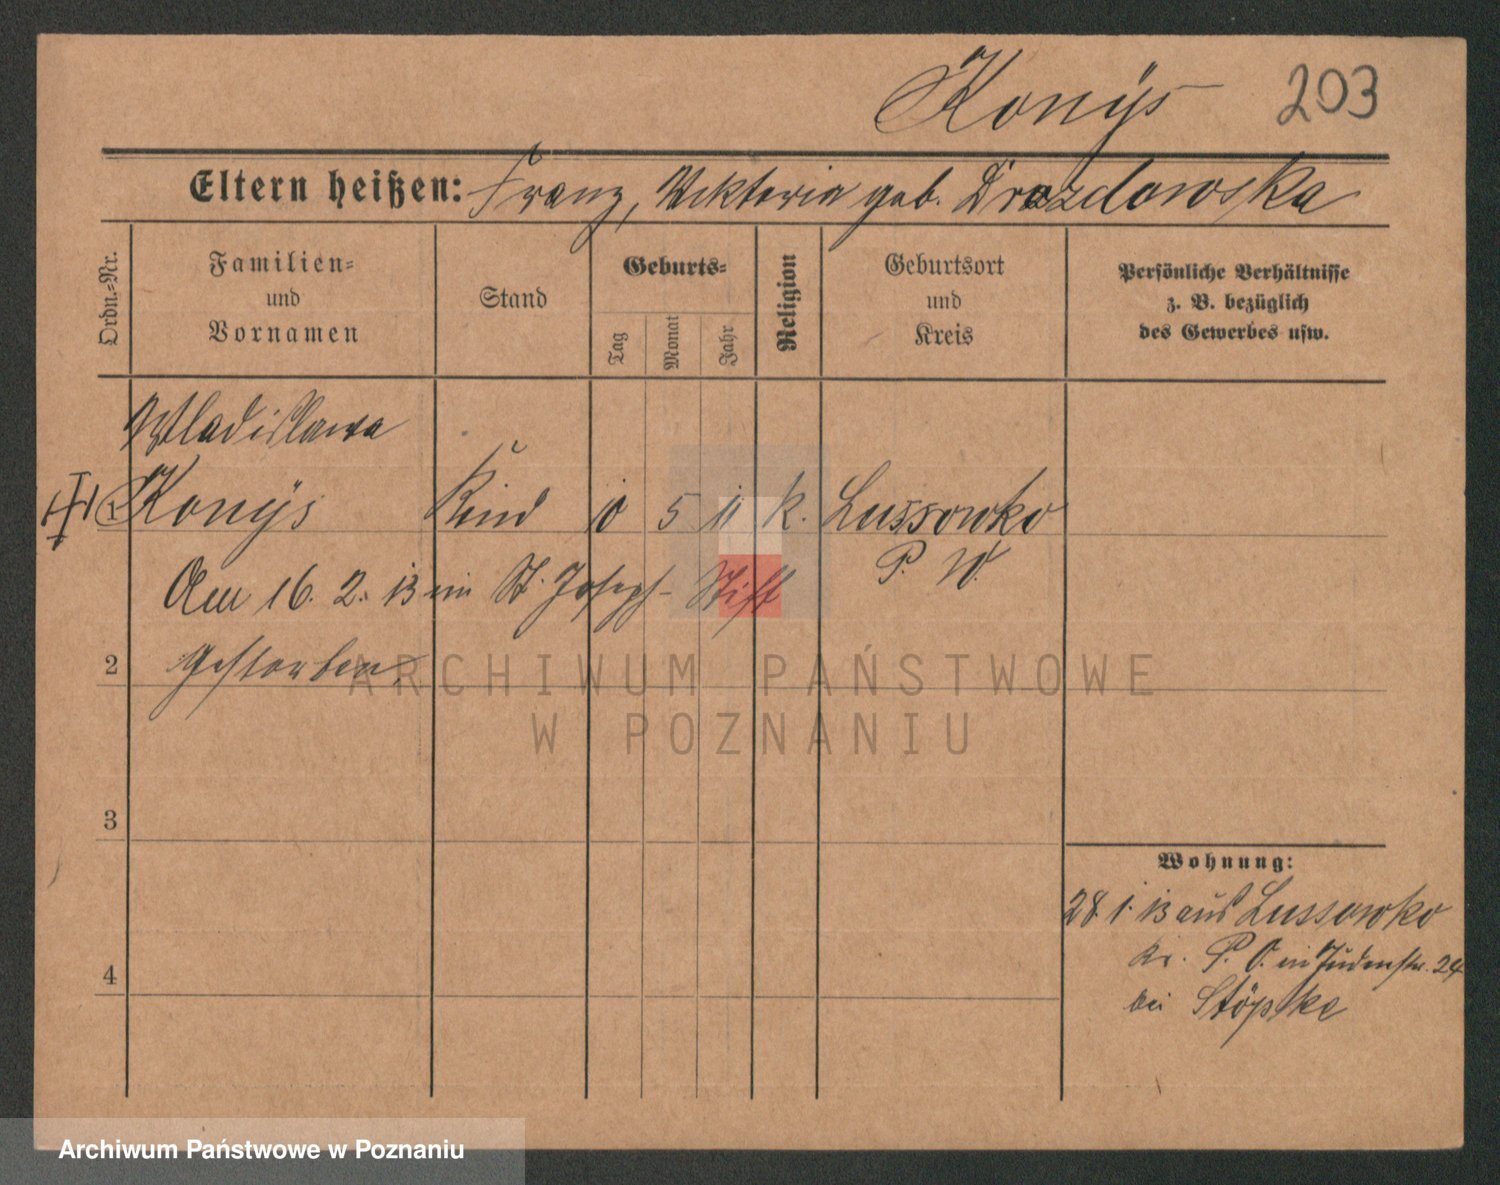 Konÿs 203
Eltern heißen: Franz, Viktoria geb. Drozdowska
Ordn.-Nr.
Familien-
und
Vornamen
Stand
Geburts-
Tag
Monat
Jahr
Religion
Geburtsort
und
Kreis
Persönliche Verhältnisse
z. B. bezüglich
des Gewerbes usw.
Wladislawa
1 Konÿs Kind 10 5 11 k. Lussowko
P. W.
Am 16. 2. 13 im St. Joseph-Stift
2 gestorben.
3
4
Wohnung:
28. 1. 13 aus Lussowko
Kr. P. O. in Judenstr. 24
bei Stöpke
ARCHIWUM PAŃSTWOWE
W POZNANIU
Archiwum Państwowe w Poznaniu